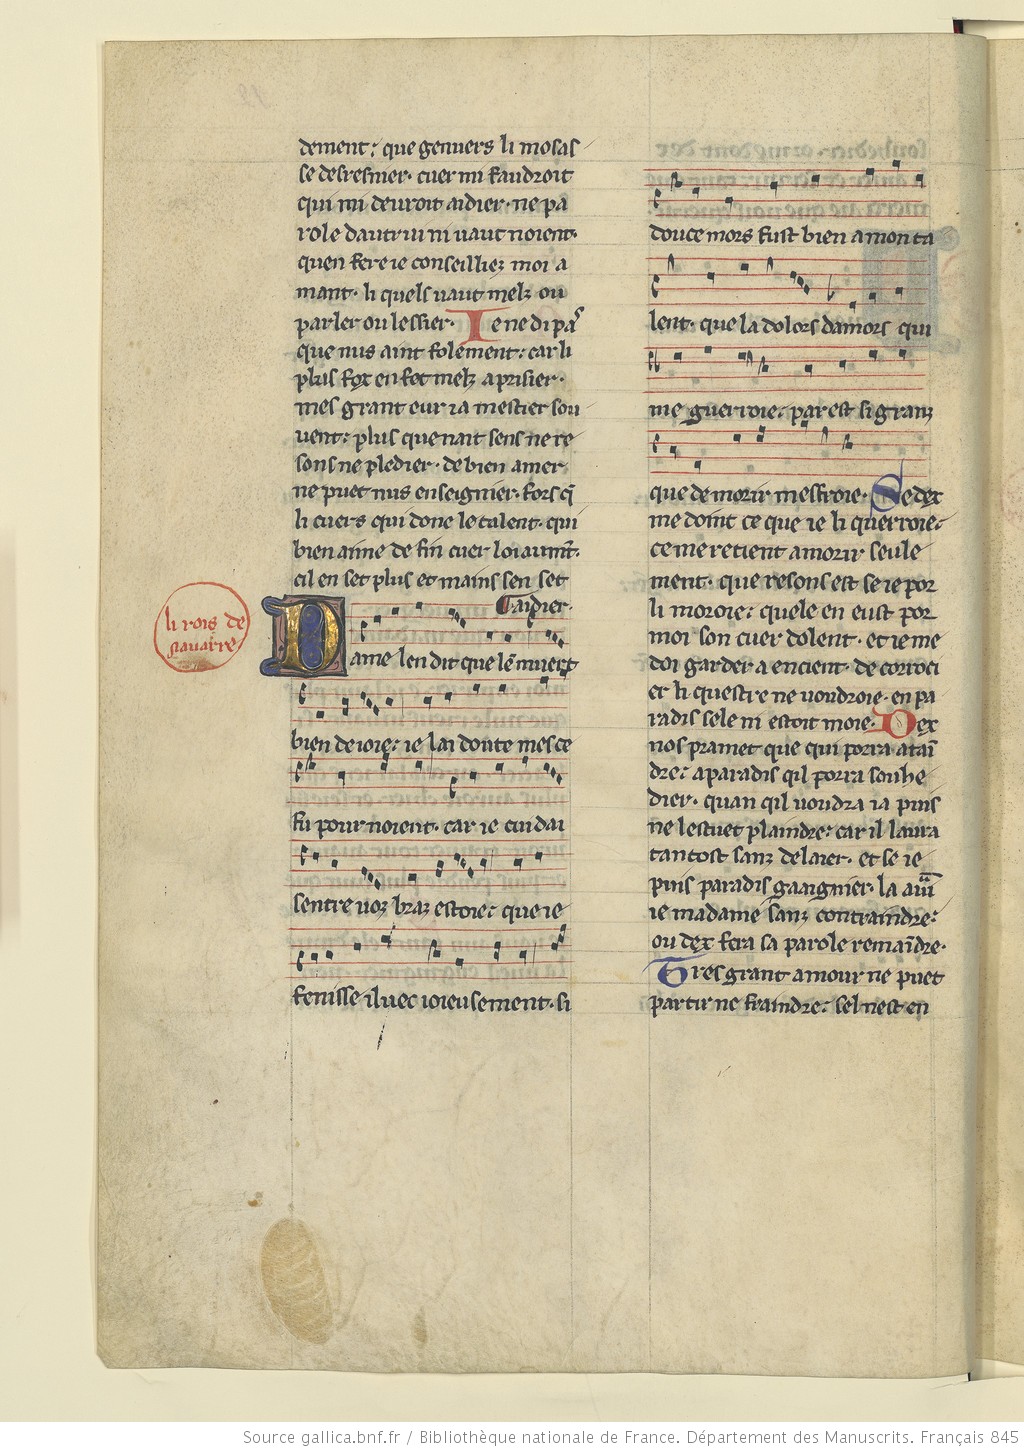 dement: que genuers li mosas
se desresnier. cuer mi faudroit
qui mi deuroit aidier. ne pa
role dautrui ni uaut noient.
quen fere ie conseilliez moi a
mant. li quels uaut melz ou
parler ou lessier. Ie ne di pas
que nus aint folement: car li
plus fox en fet melz a prisier.
mes grant eur i a mestier sou
uent: plus que nait sens ne re
sons ne pledier. de bien amer
ne puet nus enseignier. fors q̃
li cuers qui done le talent. qui
bien aime de fin cuer loiaumt̃.
cil en set plus et mains sen set
aidier.
li rois de
nauarre
Dame len dit que lẽ muert
bien de ioie: ie lai doute mes ce
fu pour noient. car ie cuidai
sentre uoz braz estoie: que ie
fenisse iluec ioieusement. si
douce mors fust bien a mon ta
lent. que la dolors damors qui
me guerroie: par est si granz
que de morir mesfroie. Se dex
me doint ce que ie li querroie:
ce me retient a morir seule
ment. que resons est se ie por
li moroie: quele en eust por
moi son cuer dolent. et ie me
doi garder a encient. de corroci
er li questre ne uoudroie. en pa
radis sele ni estoit moie. Dex
nos pramet que qui porra ataĩ
dre: a paradis qil porra souhe
dier. quan qil uoudra ia puis
ne lestuet plaindre: car il laura
tantost sanz delaier. et se ie
puis paradis gaaignier. la aũi
ie madame sanz contraindre:
ou dex fera sa parole remaĩdre.
Tres grant amour ne puet
partir ne fraindre: sel nest en
Source gallica.bnf.fr / Bibliothèque nationale de France. Département des Manuscrits. Français 845